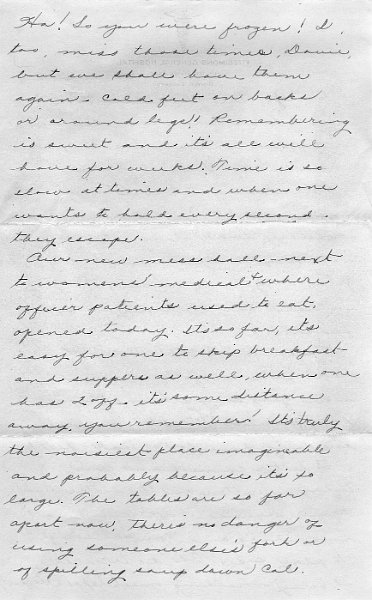 Ha! So you were frozen! I,
too, miss those times, Davie,
but we shall have them
again. Cold feet on backs
or around legs! Remembering
is sweet and it's all we'll
have for weeks. Time is so
slow at times and when one
wants to hold every second.
they escape.
Our new mess hall - next
to womens' medical & where
officer patients used to eat,
opened today. It's so far, it's
easy for one to skip breakfast
and suppers as well, when one
has 2 off. it's some distance
away, you remember! It's truly
the noisiest place imagineable
and probably because it's so
large. The tables are so far
apart now, there's no danger of
using someone else's fork or
of spilling soup down Cal.
FITZSIMONS GENERAL HOSPITAL